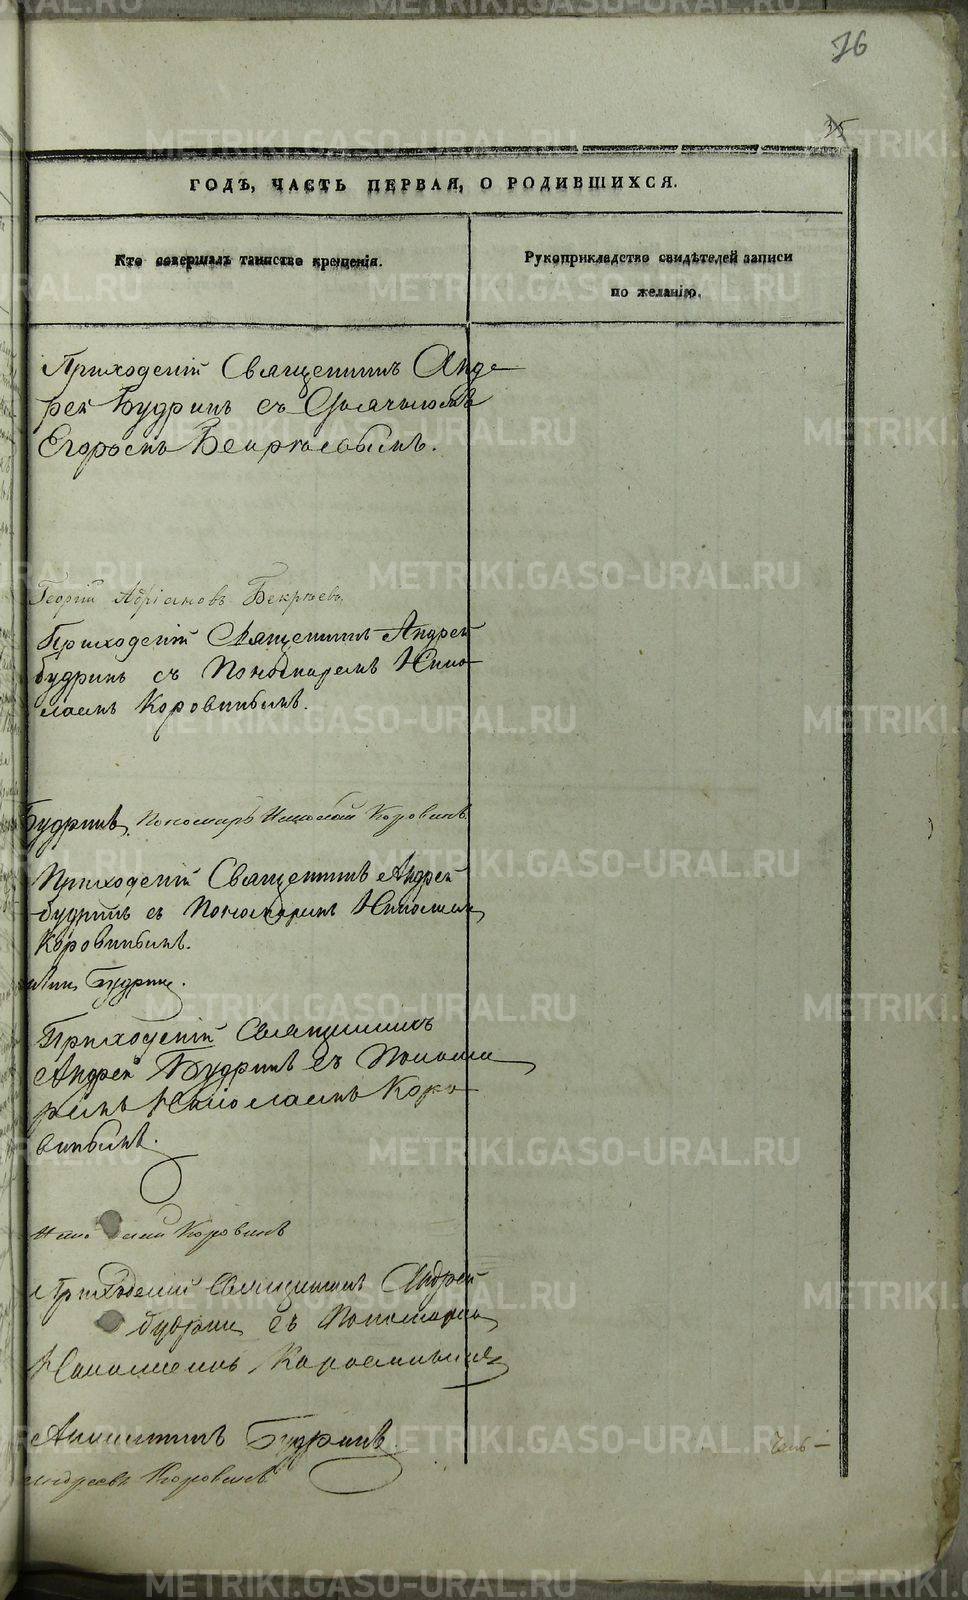 76
35
ГОДЪ, ЧАСТЬ ПЕРВАЯ, О РОДИВШИХСЯ.
Кто совершалъ таинство крещенія.
Рукоприкладство свидѣтелей записи
по желанію.
Приходскій Священникъ Анд-
рей Будринъ съ
Егоромъ Бекрѣевымъ.
Георгій Адріановъ Бекрѣевъ.
Приходскій Священникъ Андрей
Будринъ съ Пономаремъ Нико-
лаемъ Коровинымъ.
Будринъ, Пономарь Николай Коровинъ
Приходскій Священникъ Андрей
Будринъ съ Пономаремъ Николаемъ
Коровинымъ.
Будринъ.
Приходскій Священникъ
Андрей Будринъ съ Понома
ремъ Николаемъ Коро
винымъ.
Николай Коровинъ
Приходскій Священникъ Андрей
Будринъ съ Пономаремъ
Николаемъ Коровинымъ
Будринъ
Андреевъ Коровинъ
METRIKI.GASO-URAL.RU